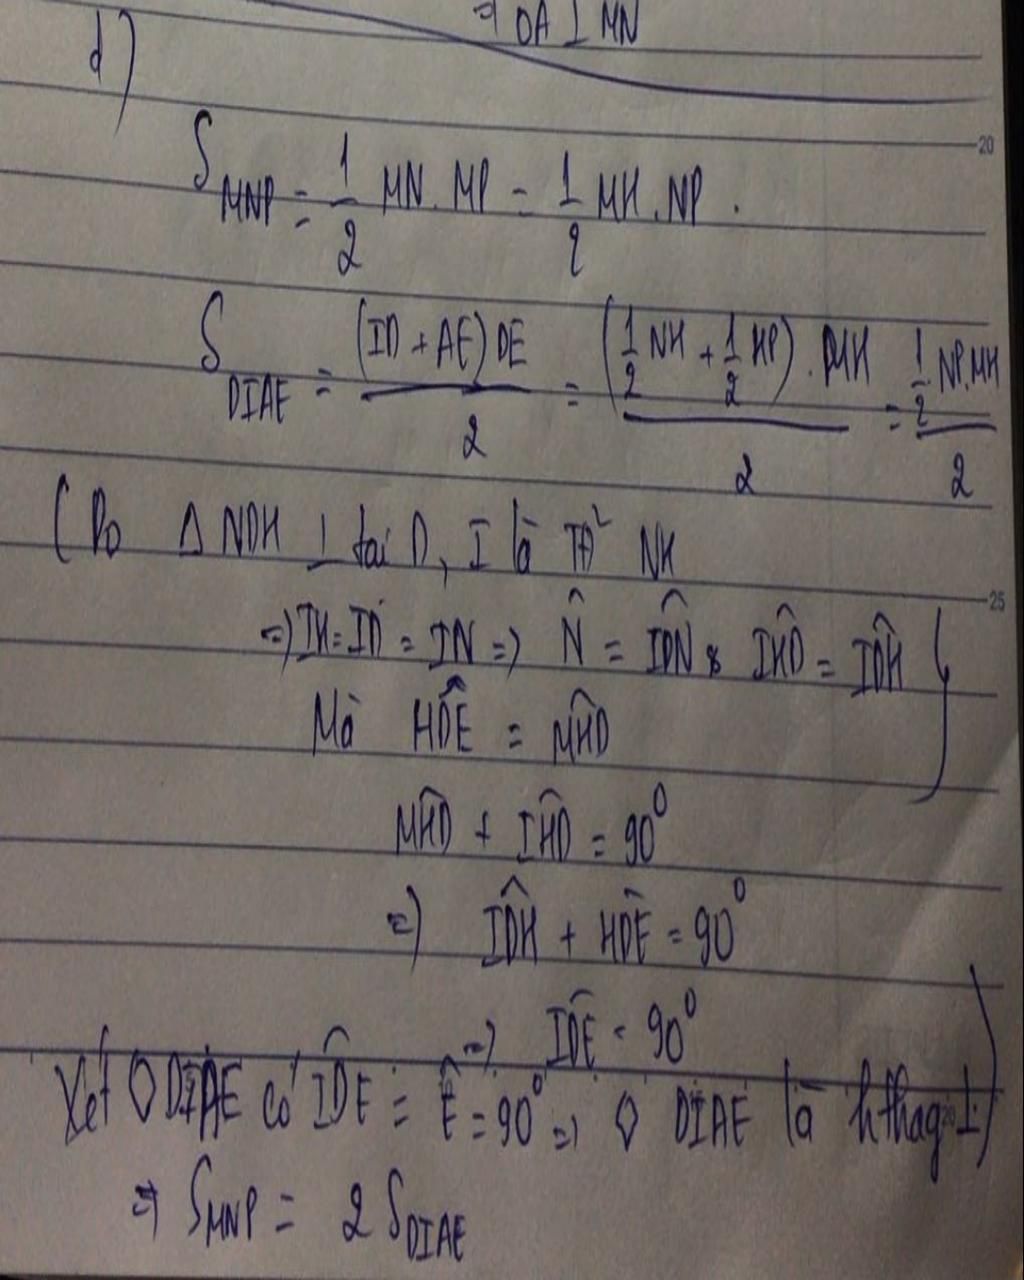 ⇒ OA ⊥ MN
d)
20
S_MNP = 1/2 MN. MP = 1/2 MH. NP.
S_DIAE = (ID + AE)DE / 2 = (1/2 NH + 1/2 HP). MH / 2 = 1/2 NP.MH / 2
(Do Δ NDH ⊥ tại D, I là TĐ² NH
25
⇒ IH = ID = IN ⇒ N̂ = ID̂N & IĤD = ID̂H
Mà HD̂E = MĤD
MĤD + IĤD = 90⁰
⇒ ID̂H + HD̂E = 90⁰
⇒ ID̂E = 90⁰
Xét ◊ DIAE có ID̂E = Ê = 90⁰ ⇒ ◊ DIAE là hthag ⊥)
⇒ S_MNP = 2 S_DIAE